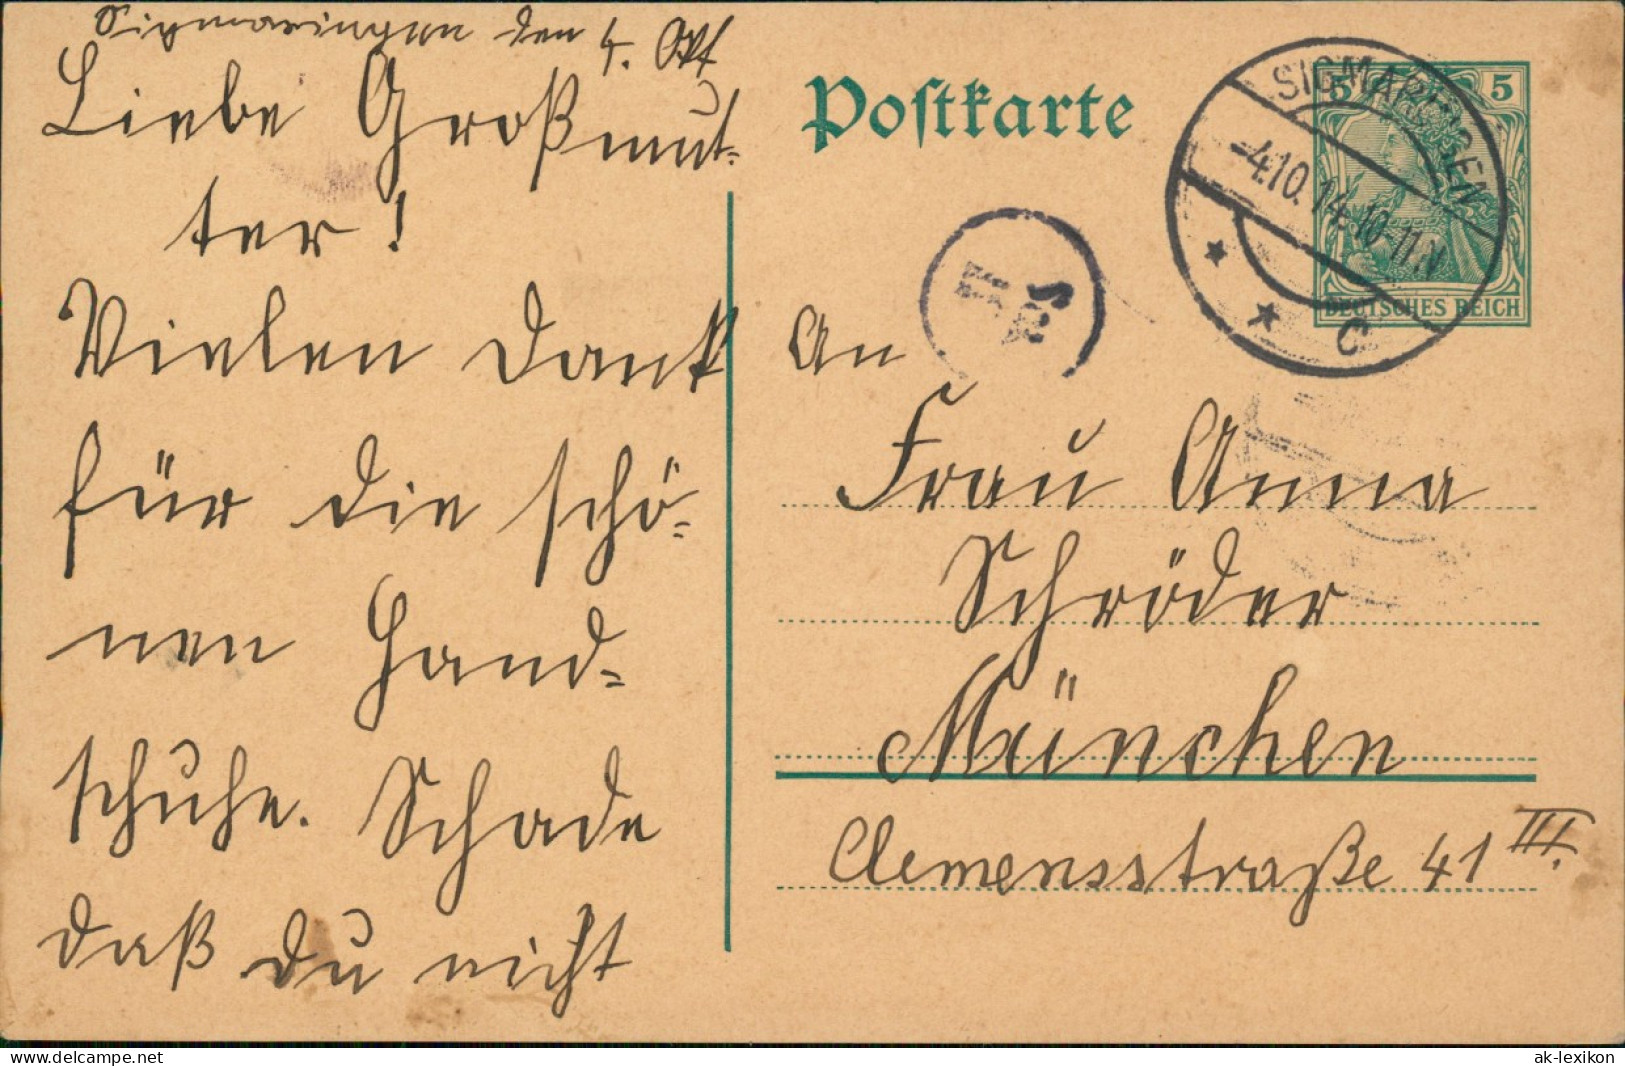 Sigmaringen den 4. Okt
Liebe Großmut-
ter!
Vielen Dank
für die schö-
nen Hand-
schuhe. Schade
daß du nicht
Postkarte
SIGMARINGEN
-4.10.14.10-11.V
* * C
5 5
DEUTSCHES REICH
An
Frau Anna
Schröder
München
Clemensstraße 41 III.
www.delcampe.net
ak-lexikon